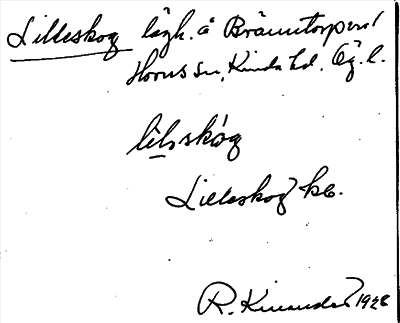 Lilleskog lägh. å Bränntorpen/
Horns sn, Kinda hd. Ög. l.
lilsskog
Lilleskog kb.
R. Kinander 1926